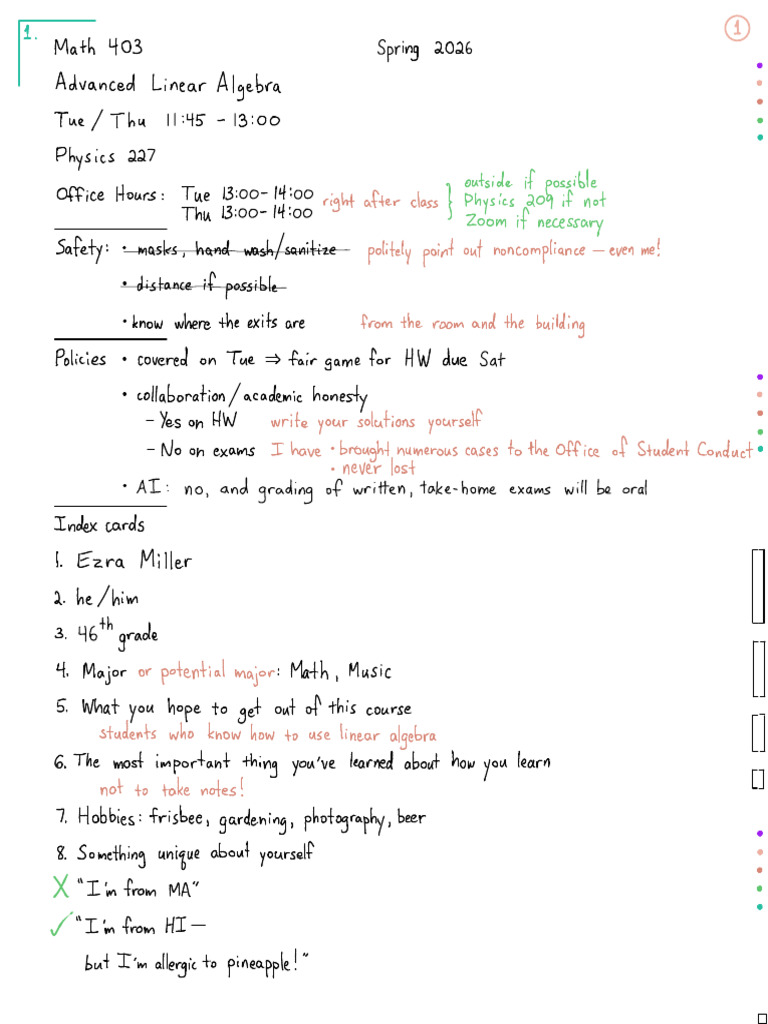 1.
1
Math 403 Spring 2026
Advanced Linear Algebra
Tue / Thu 11:45 – 13:00
Physics 227
Office Hours: Tue 13:00 – 14:00 right after class } outside if possible
Thu 13:00 – 14:00 Physics 209 if not
Zoom if necessary
Safety: • masks, hand wash/sanitize politely point out noncompliance — even me!
• distance if possible
• know where the exits are from the room and the building
Policies • covered on Tue ⇒ fair game for HW due Sat
• collaboration/academic honesty
– Yes on HW write your solutions yourself
– No on exams I have • brought numerous cases to the Office of Student Conduct
• never lost
• AI: no, and grading of written, take-home exams will be oral
Index cards
1. Ezra Miller
2. he/him
3. 46th grade
4. Major or potential major: Math, Music
5. What you hope to get out of this course
students who know how to use linear algebra
6. The most important thing you've learned about how you learn
not to take notes!
7. Hobbies: frisbee, gardening, photography, beer
8. Something unique about yourself
X "I'm from MA"
✓ "I'm from HI —
but I'm allergic to pineapple!"